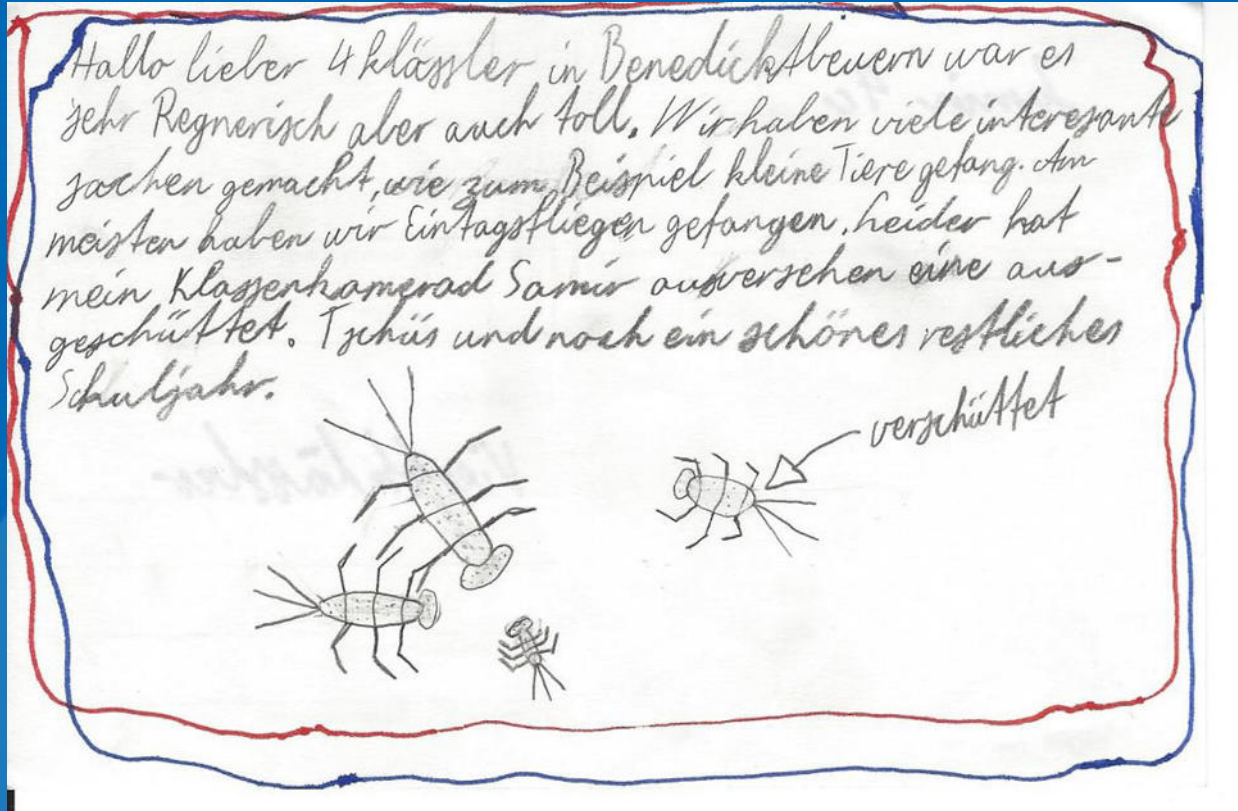 Hallo lieber 4 klässler in Benedicktbeuern war es
sehr Regnerisch aber auch toll. Wir haben viele interesante
sachen gemacht, wie zum Beispiel kleine Tiere gefang. Am
meisten haben wir Eintagsfliegen gefangen. Leider hat
mein Klassenkamerad Samir ausversehen eine aus-
geschüttet. Tschüs und noch ein schönes restliches
Schuljahr.
verschüttet